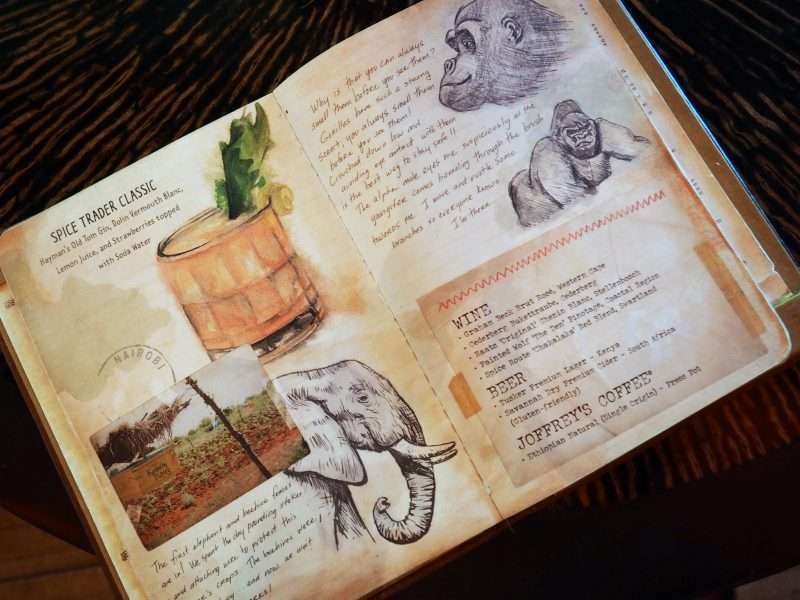 SPICE TRADER CLASSIC
Hayman's Old Tom Gin, Dolin Vermouth Blanc,
Lemon Juice, and Strawberries topped
with Soda Water
NAIROBI
The first elephant and beehive fences
are in! We spent the day pounding stakes
and attaching wire to protect this
crops. The beehives were
and now we wait
Why is that you can always
smell them before you see them?
Gorillas have such a strong
scent, you always smell them
before you see them!
Crouched down low and
avoiding eye contact with them
is the best way to stay safe!!
The alpha male eyes me suspiciously as the
youngster comes bounding through the brush
towards me. I move and rustle some
branches so everyone knows
I'm there.
WINE
- Graham Beck Brut Rosé, Western Cape
- Cederberg Bukettraube, Cederberg
- Raats 'Original' Chenin Blanc, Stellenbosch
- Painted Wolf 'The Den' Pinotage, Coastal Region
- Spice Route 'Chakalaka' Red Blend, Swartland
BEER
- Tusker Premium Lager - Kenya
- Savannah Dry Premium Cider - South Africa
(Gluten-friendly)
JOFFREY'S COFFEE®
- Ethiopian Natural (Single Origin) - Press Pot